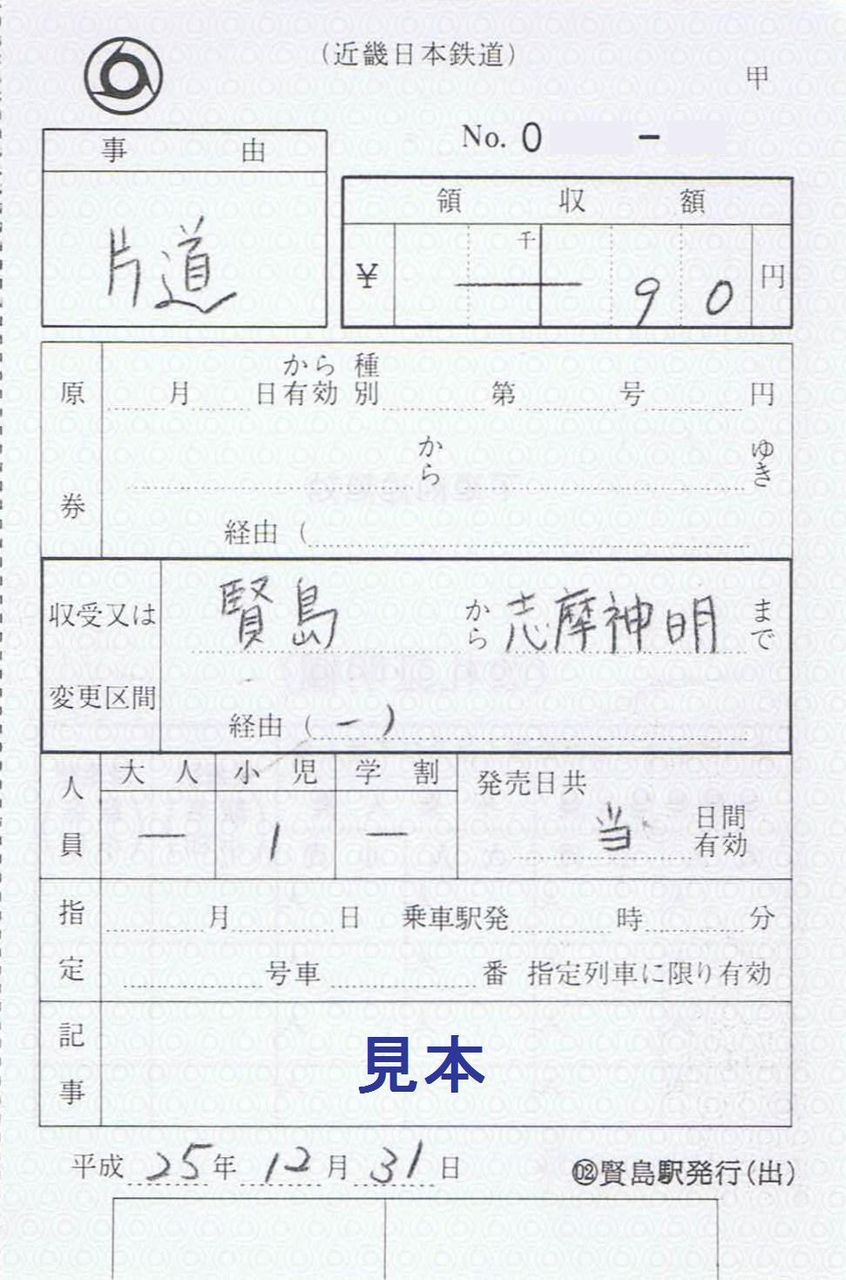 (近畿日本鉄道)
甲
No. 0 -
事由
片道
領収額
千
¥ 90 円
原券
月 日から有効 種別 第 号 円
から ゆき
経由 (
収受又は変更区間
賢島 から 志摩神明 まで
経由 (ー)
人員
大人 小児 学割
ー 1 ー
発売日共 当 日間有効
指定
月 日 乗車駅発 時 分
号車 番 指定列車に限り有効
記事
見本
平成 25 年 12 月 31 日
02 賢島駅発行(出)